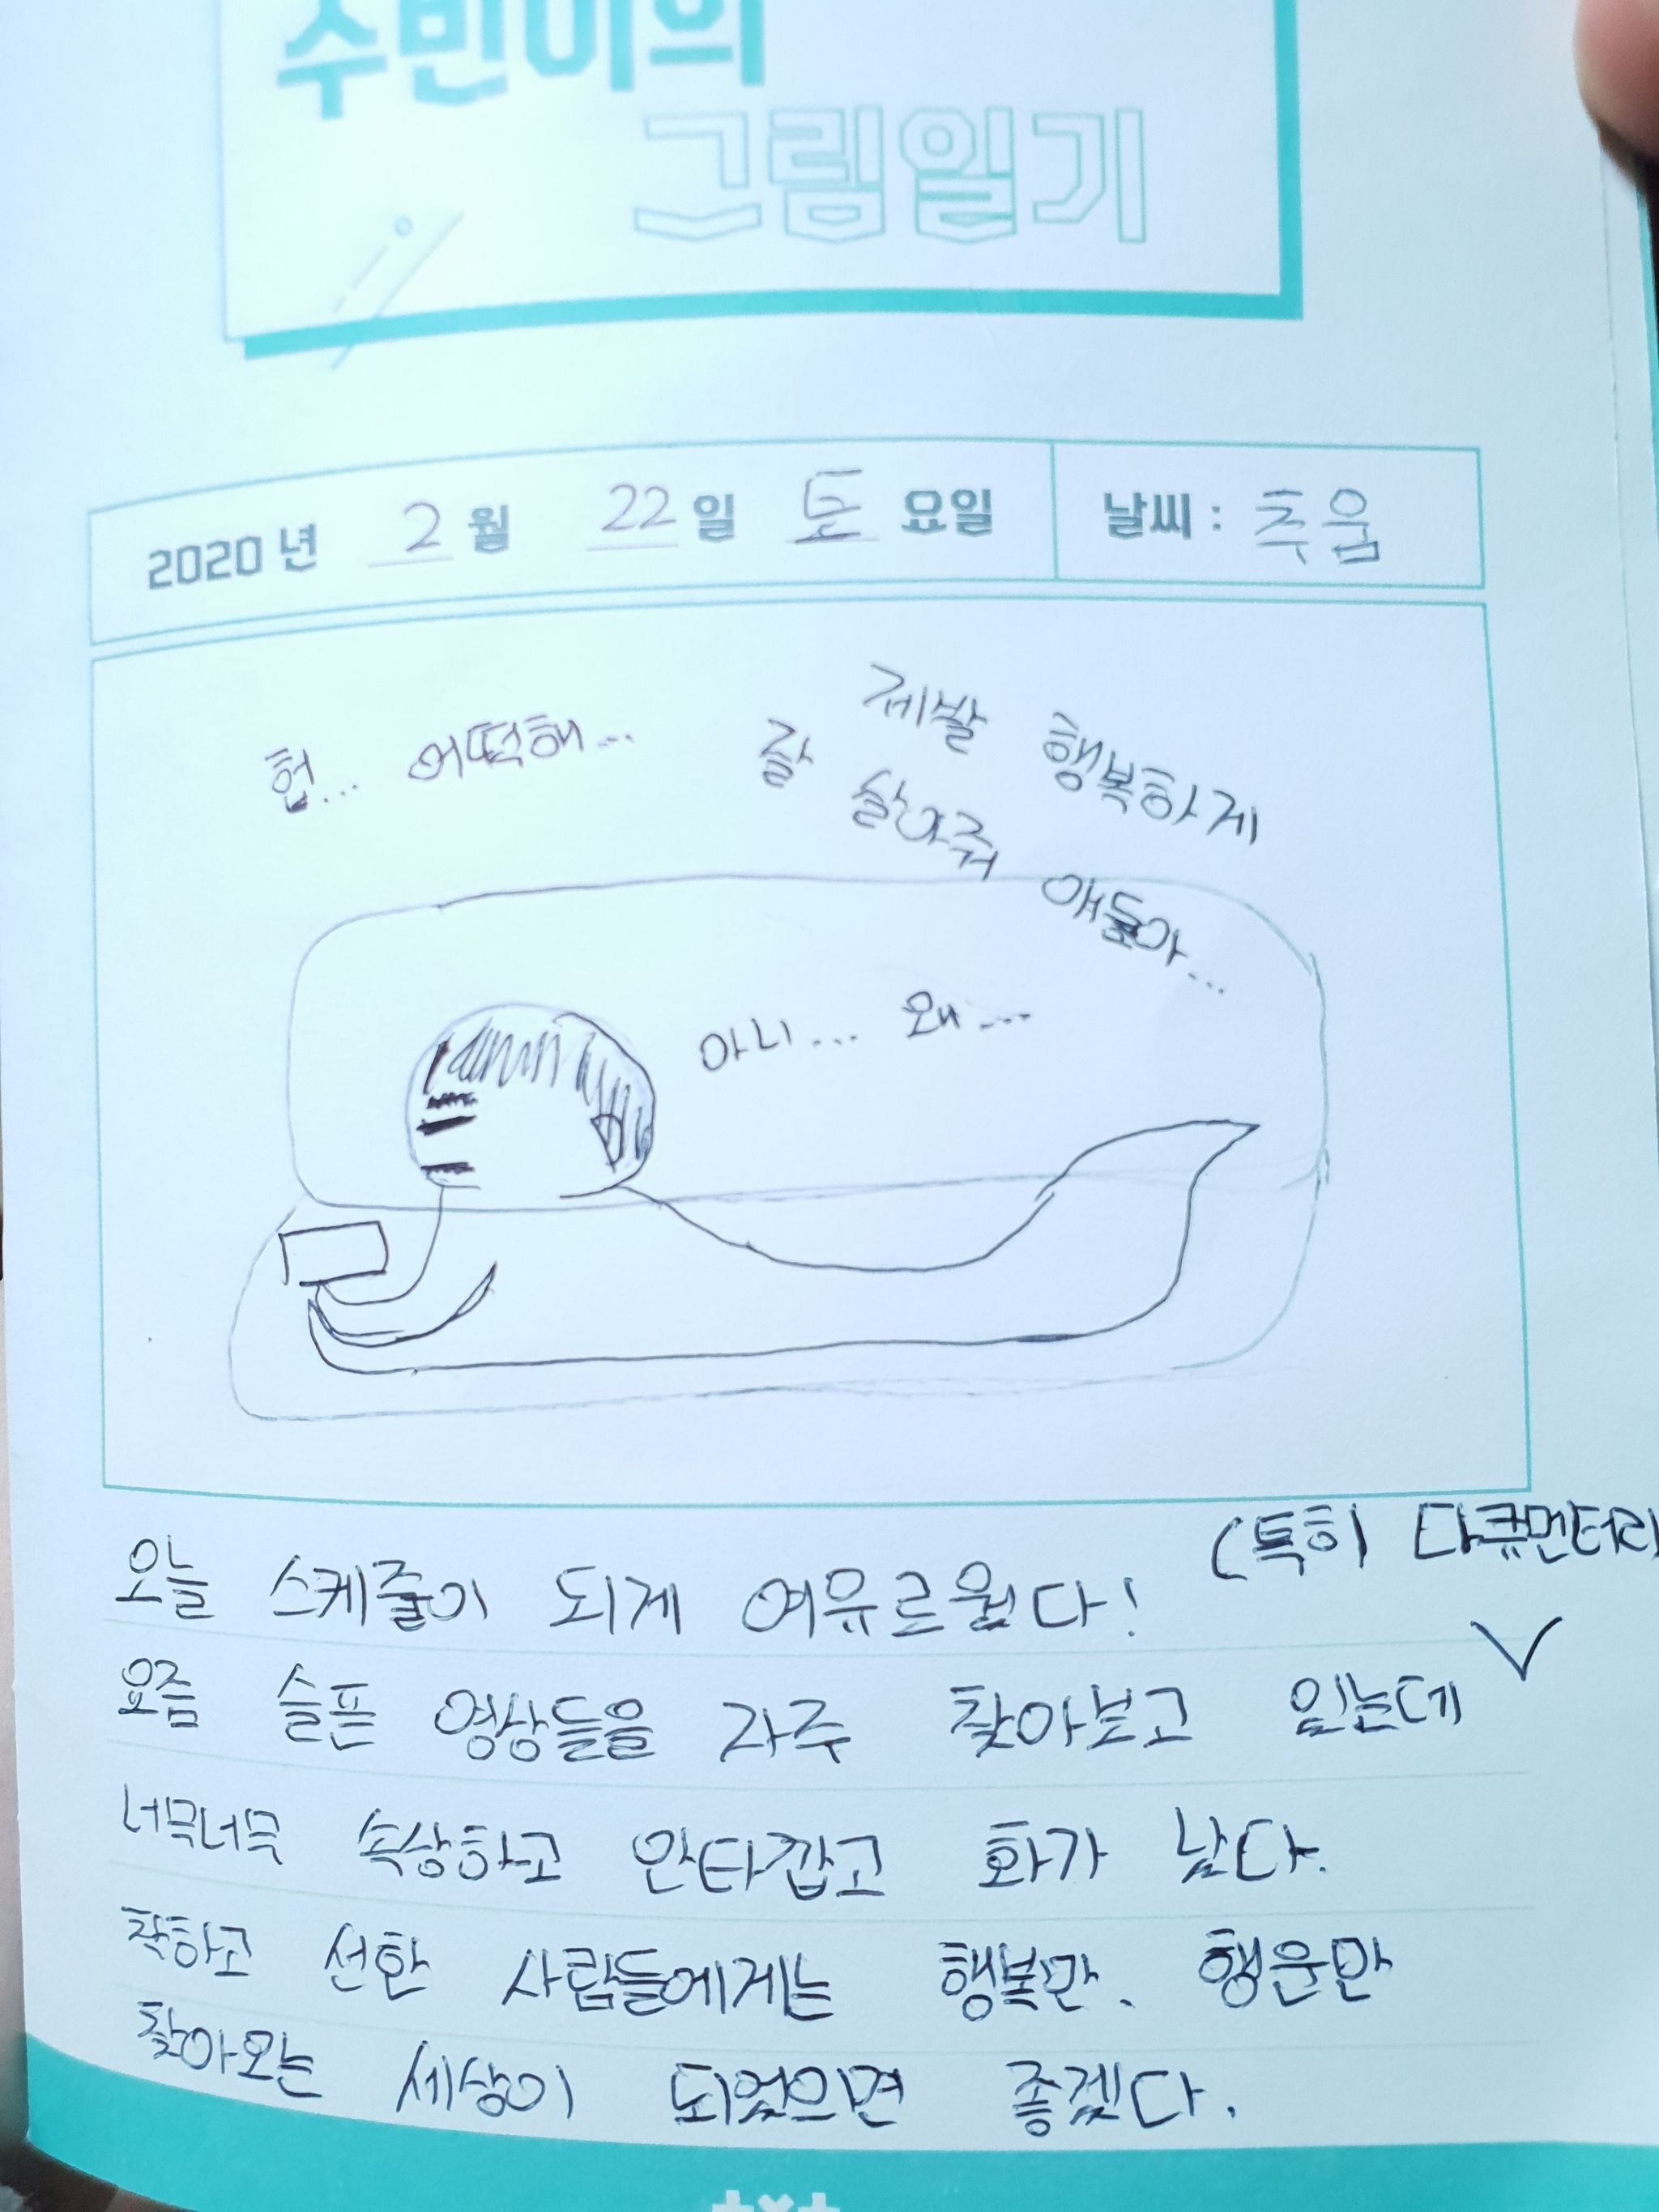 수빈이의
그림일기
2020 년 2 월 22 일 토 요일 날씨 : 추움
헙... 어떡해...
제발 행복하게
잘 살아줘 얘들아...
아니... 왜...
(특히 다큐먼터리)
오늘 스케줄이 되게 여유로웠다!
요즘 슬픈 영상들을 자주 찾아보고 있는데 ∨
너무너무 속상하고 안타깝고 화가 났다.
착하고 선한 사람들에게는 행복만, 행운만
찾아오는 세상이 되었으면 좋겠다.